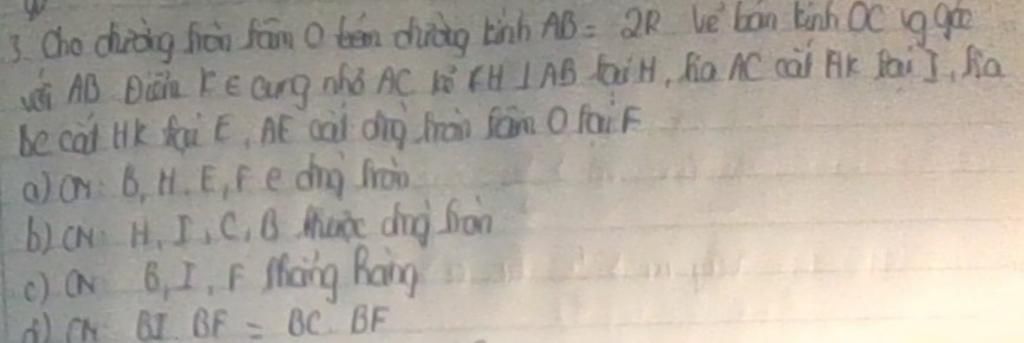 3. Cho đường tròn tâm O đường kính AB = 2R Vẽ bán kính OC vg góc
với AB Điểm K ∈ cung nhỏ AC kẻ KH ⊥ AB tại H, tia AC cắt HK tại I, tia
BC cắt HK tại E, AE cắt đtg tròn tâm O tại F
a) CM: B, H, E, F ∈ đtg tròn
b) CM: H, I, C, B thuộc đtg tròn
c) CM B, I, F thẳng hàng
d) CM BI. BF = BC. BF